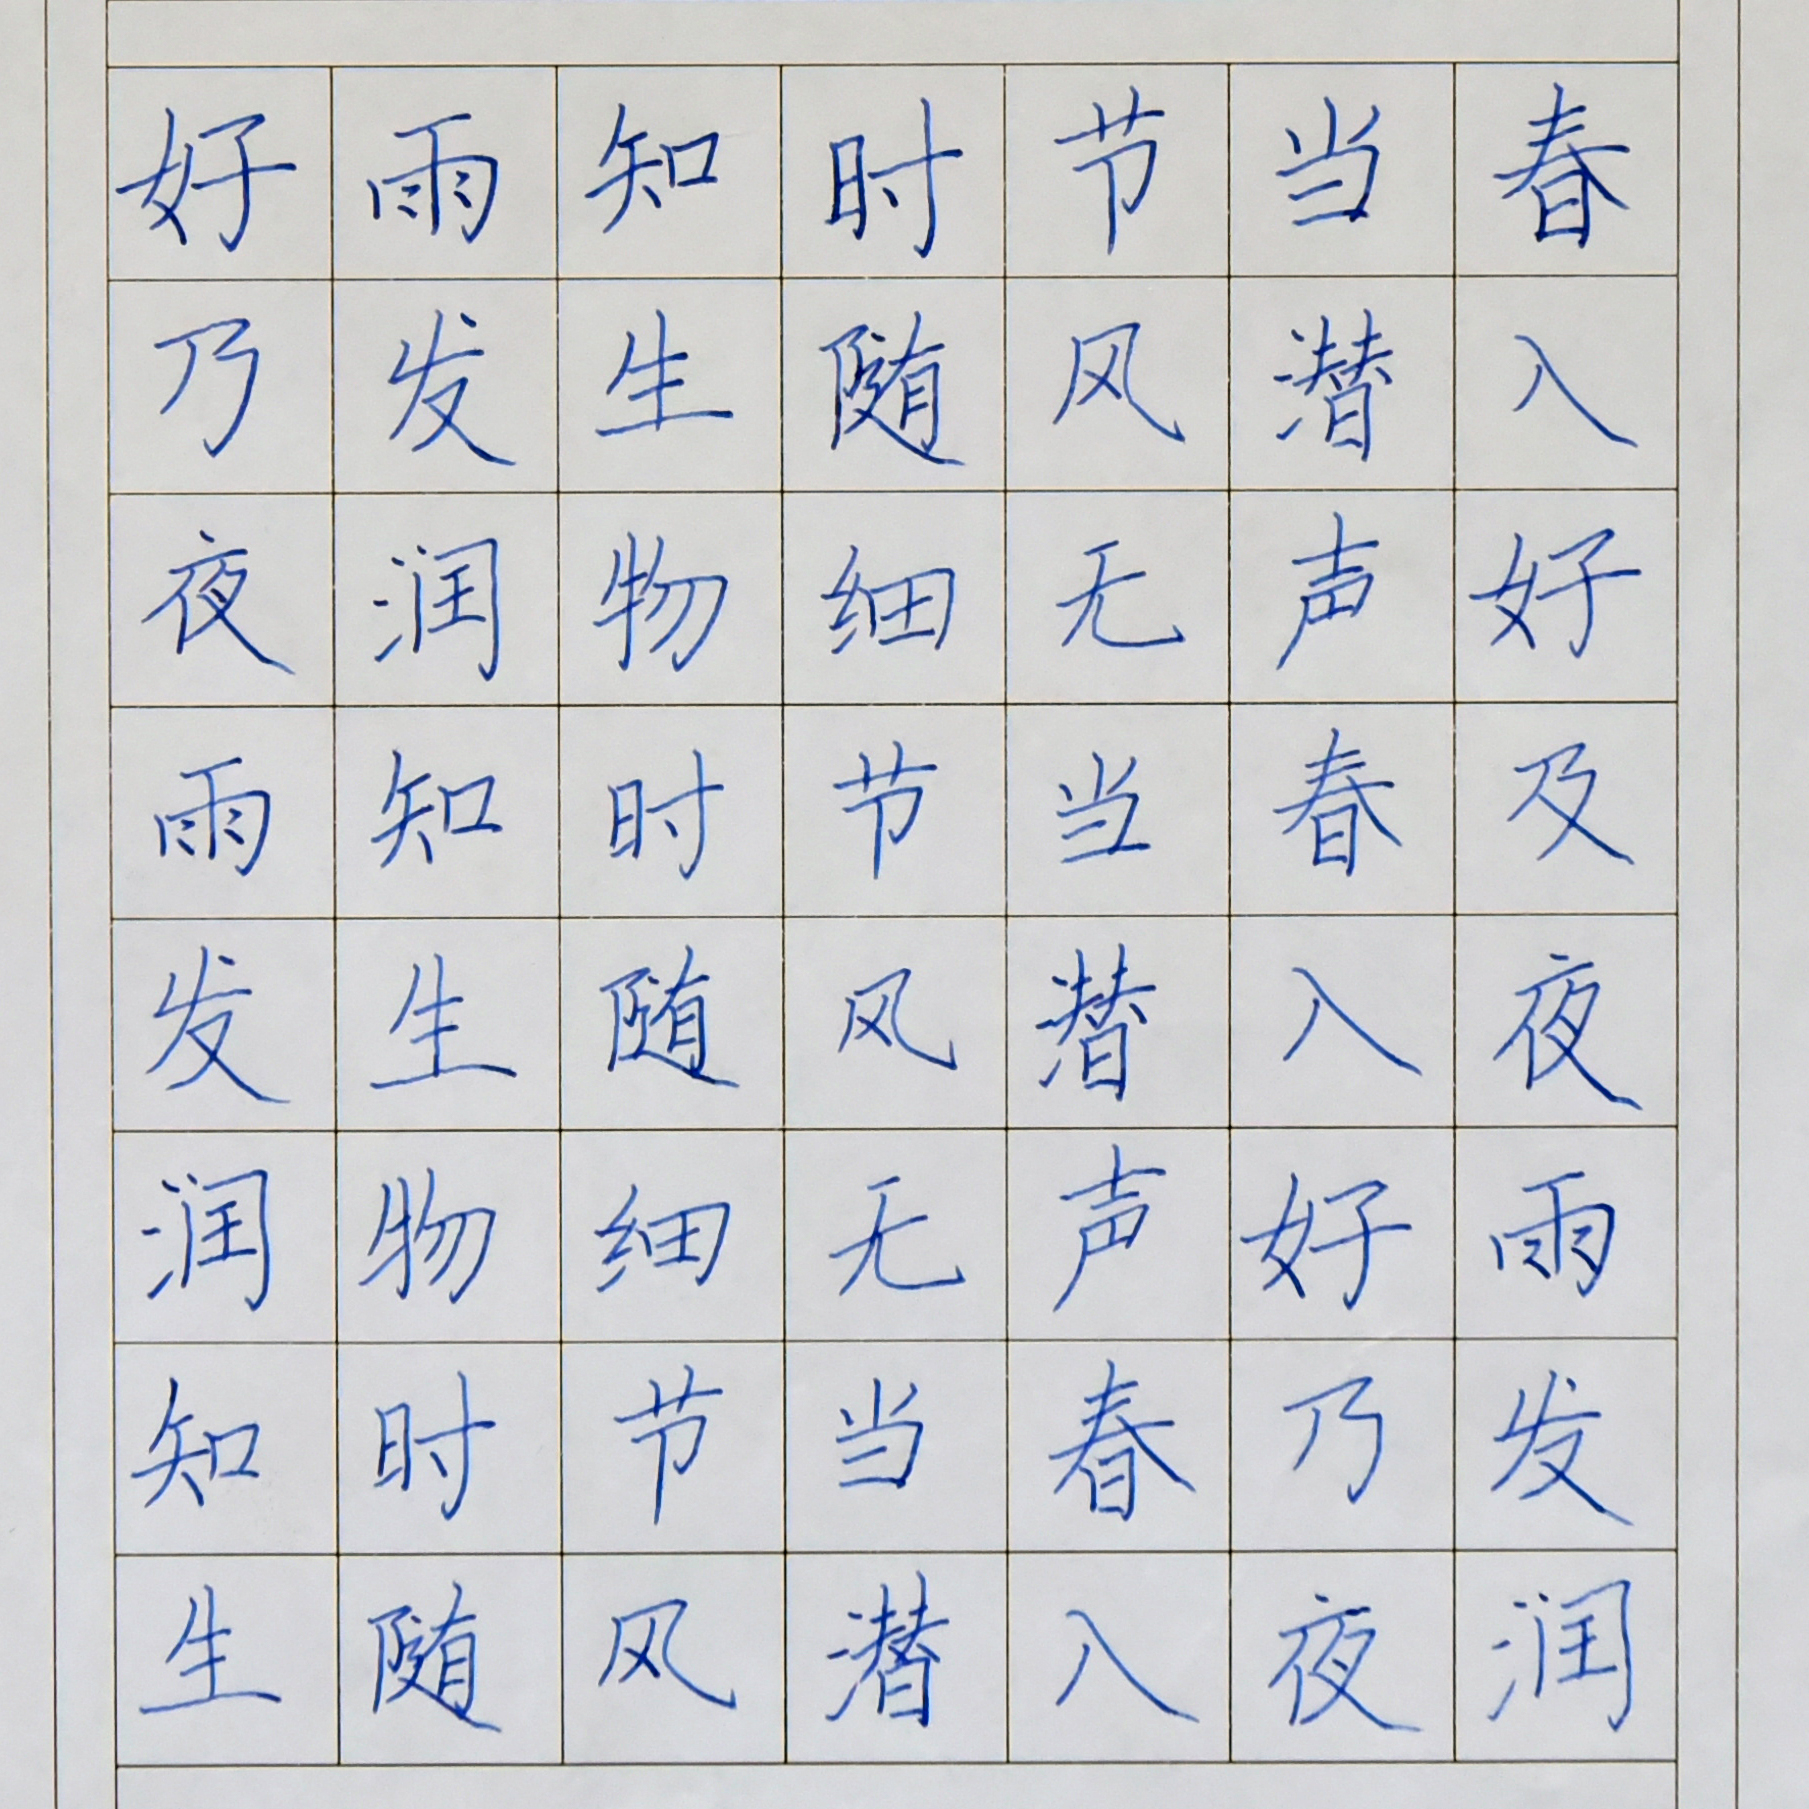 好雨知时节当春
乃发生随风潜入
夜润物细无声好
雨知时节当春及
发生随风潜入夜
润物细无声好雨
知时节当春乃发
生随风潜入夜润